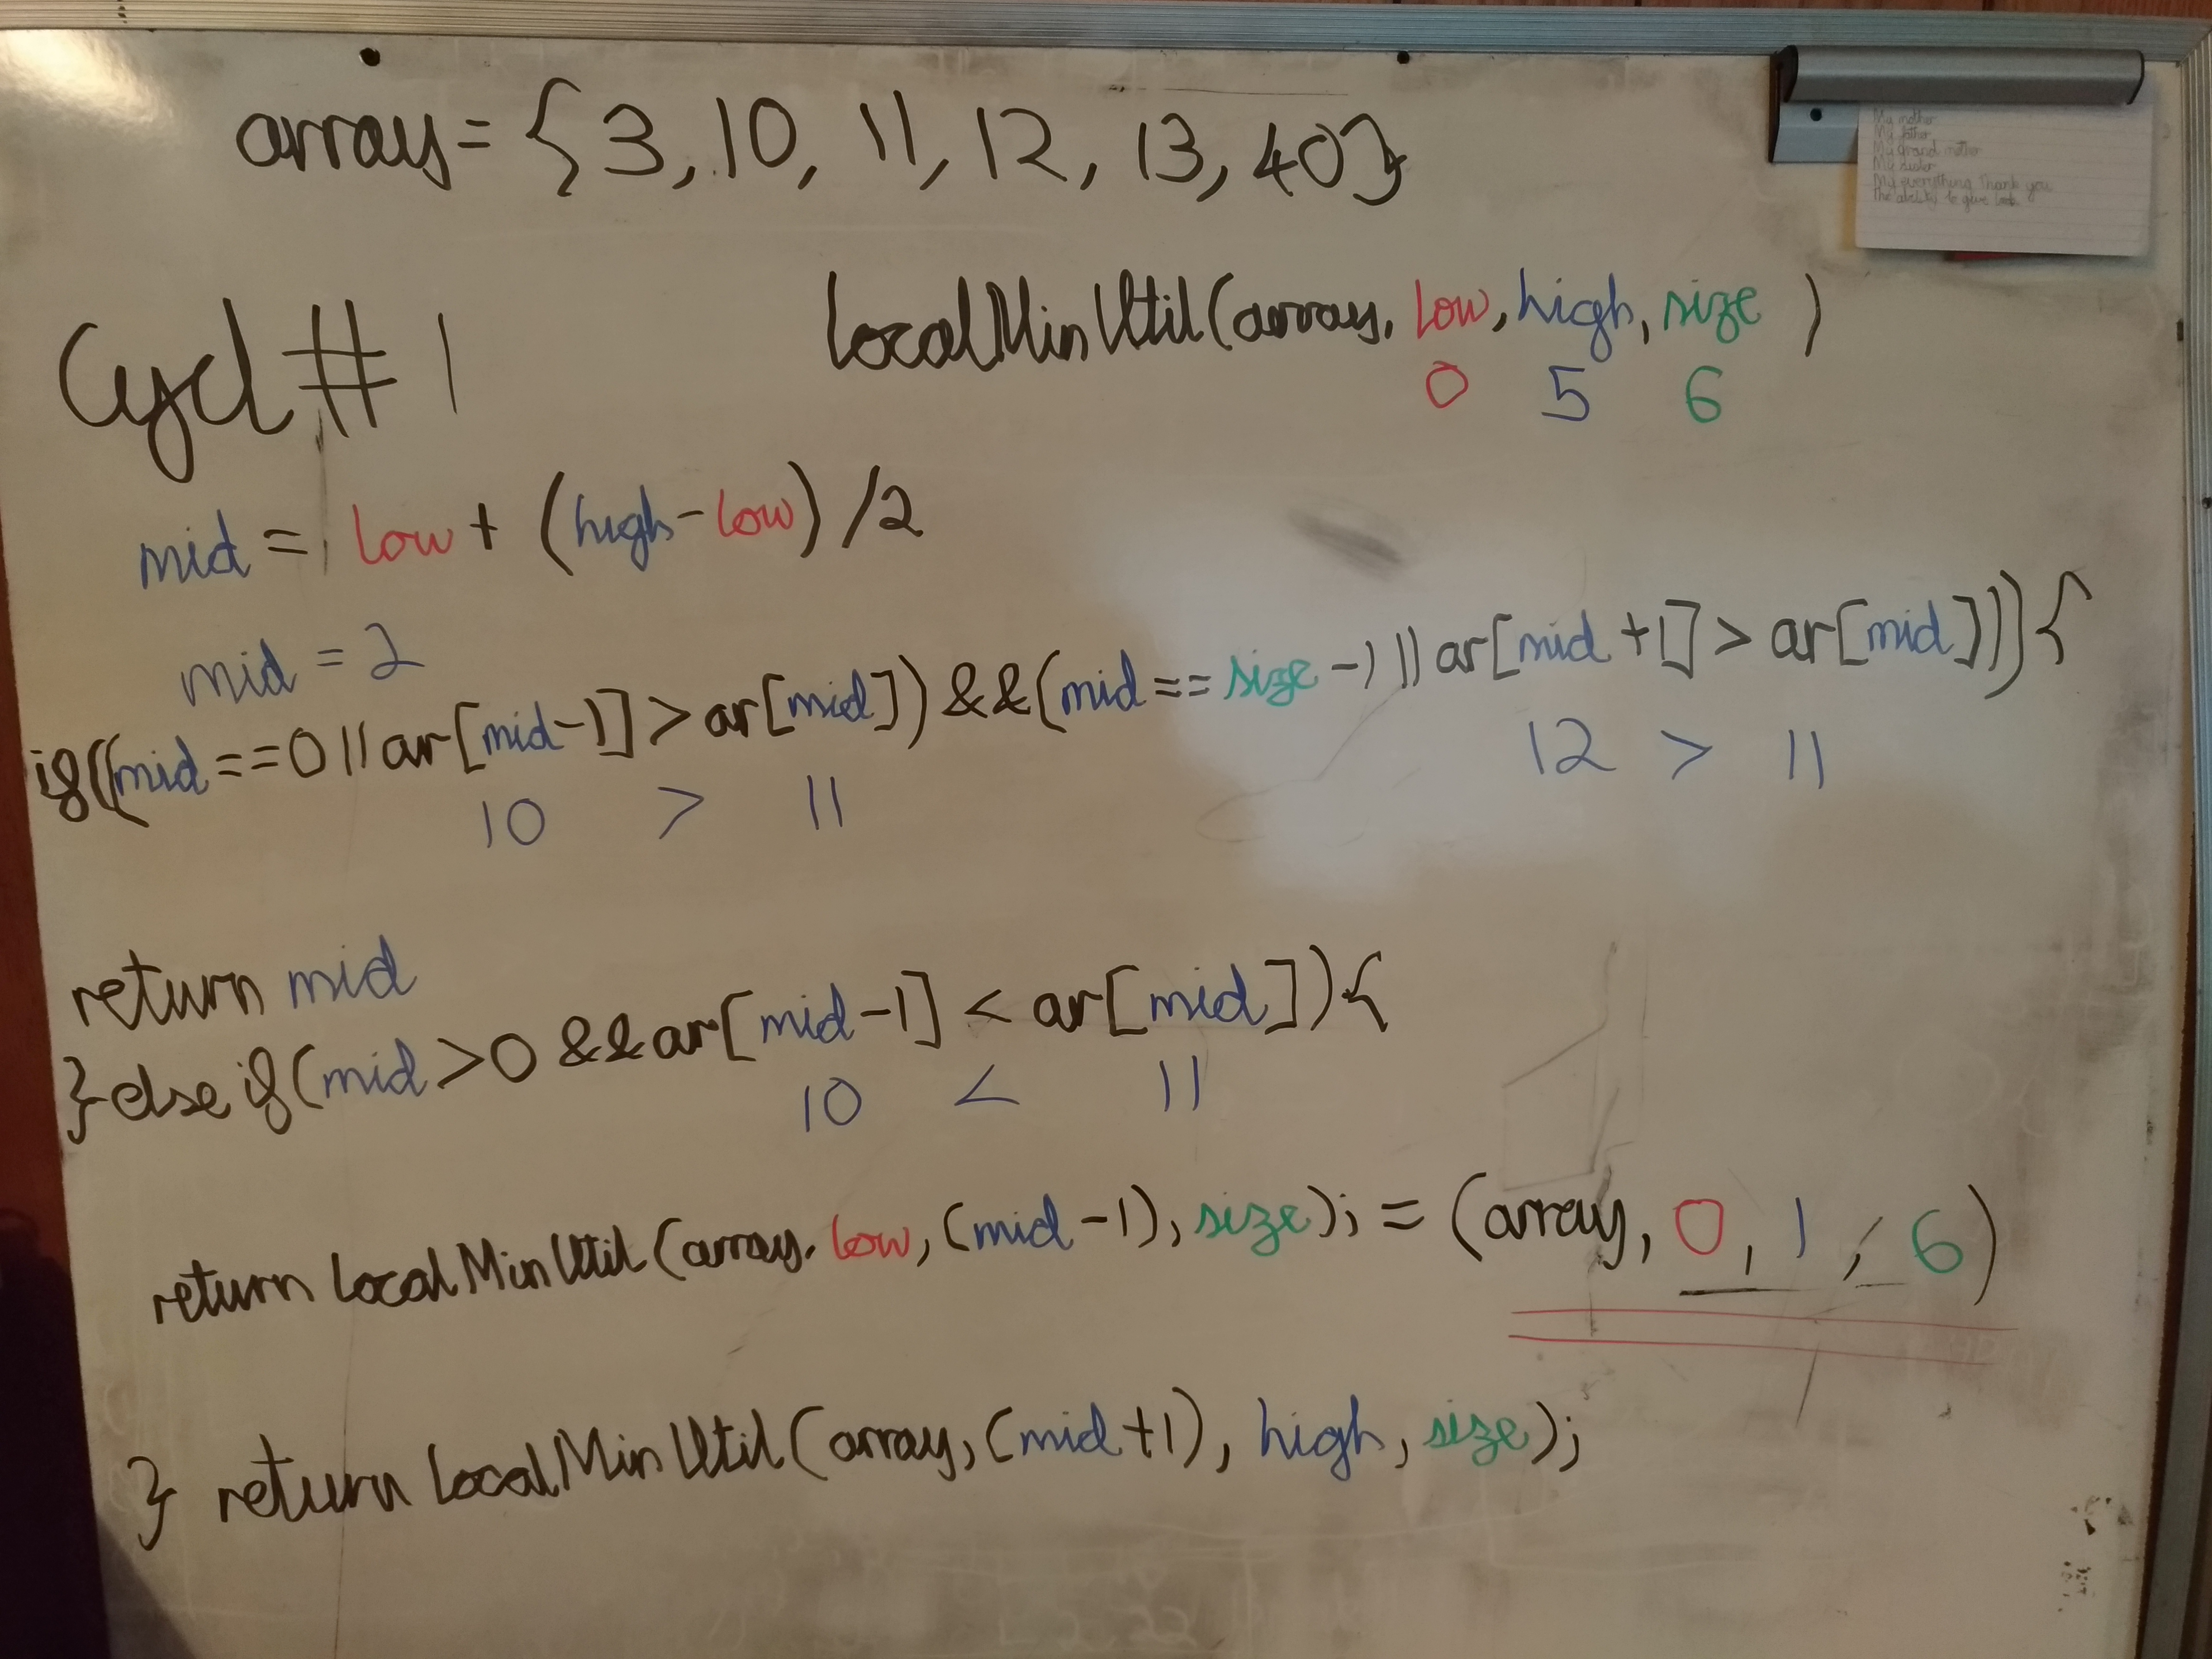 array = {3, 10, 11, 12, 13, 40}
My mother
My father
My grand mother
My sister
My everything Thank you
The ability to give
LocalMinUtil(array, low, high, size )
0 5 6
Cycl # 1
mid = low + (high-low) /2
mid = 2
if((mid==0 || ar[mid-1] > ar[mid]) && (mid==size-1 || ar[mid+1] > ar[mid])){
10 > 11 12 > 11
return mid
} else if (mid>0 && ar[mid-1] < ar[mid]){
10 < 11
return LocalMinUtil(array, low, (mid-1), size); = (array, 0, 1, 6)
} return LocalMinUtil(array, (mid+1), high, size);